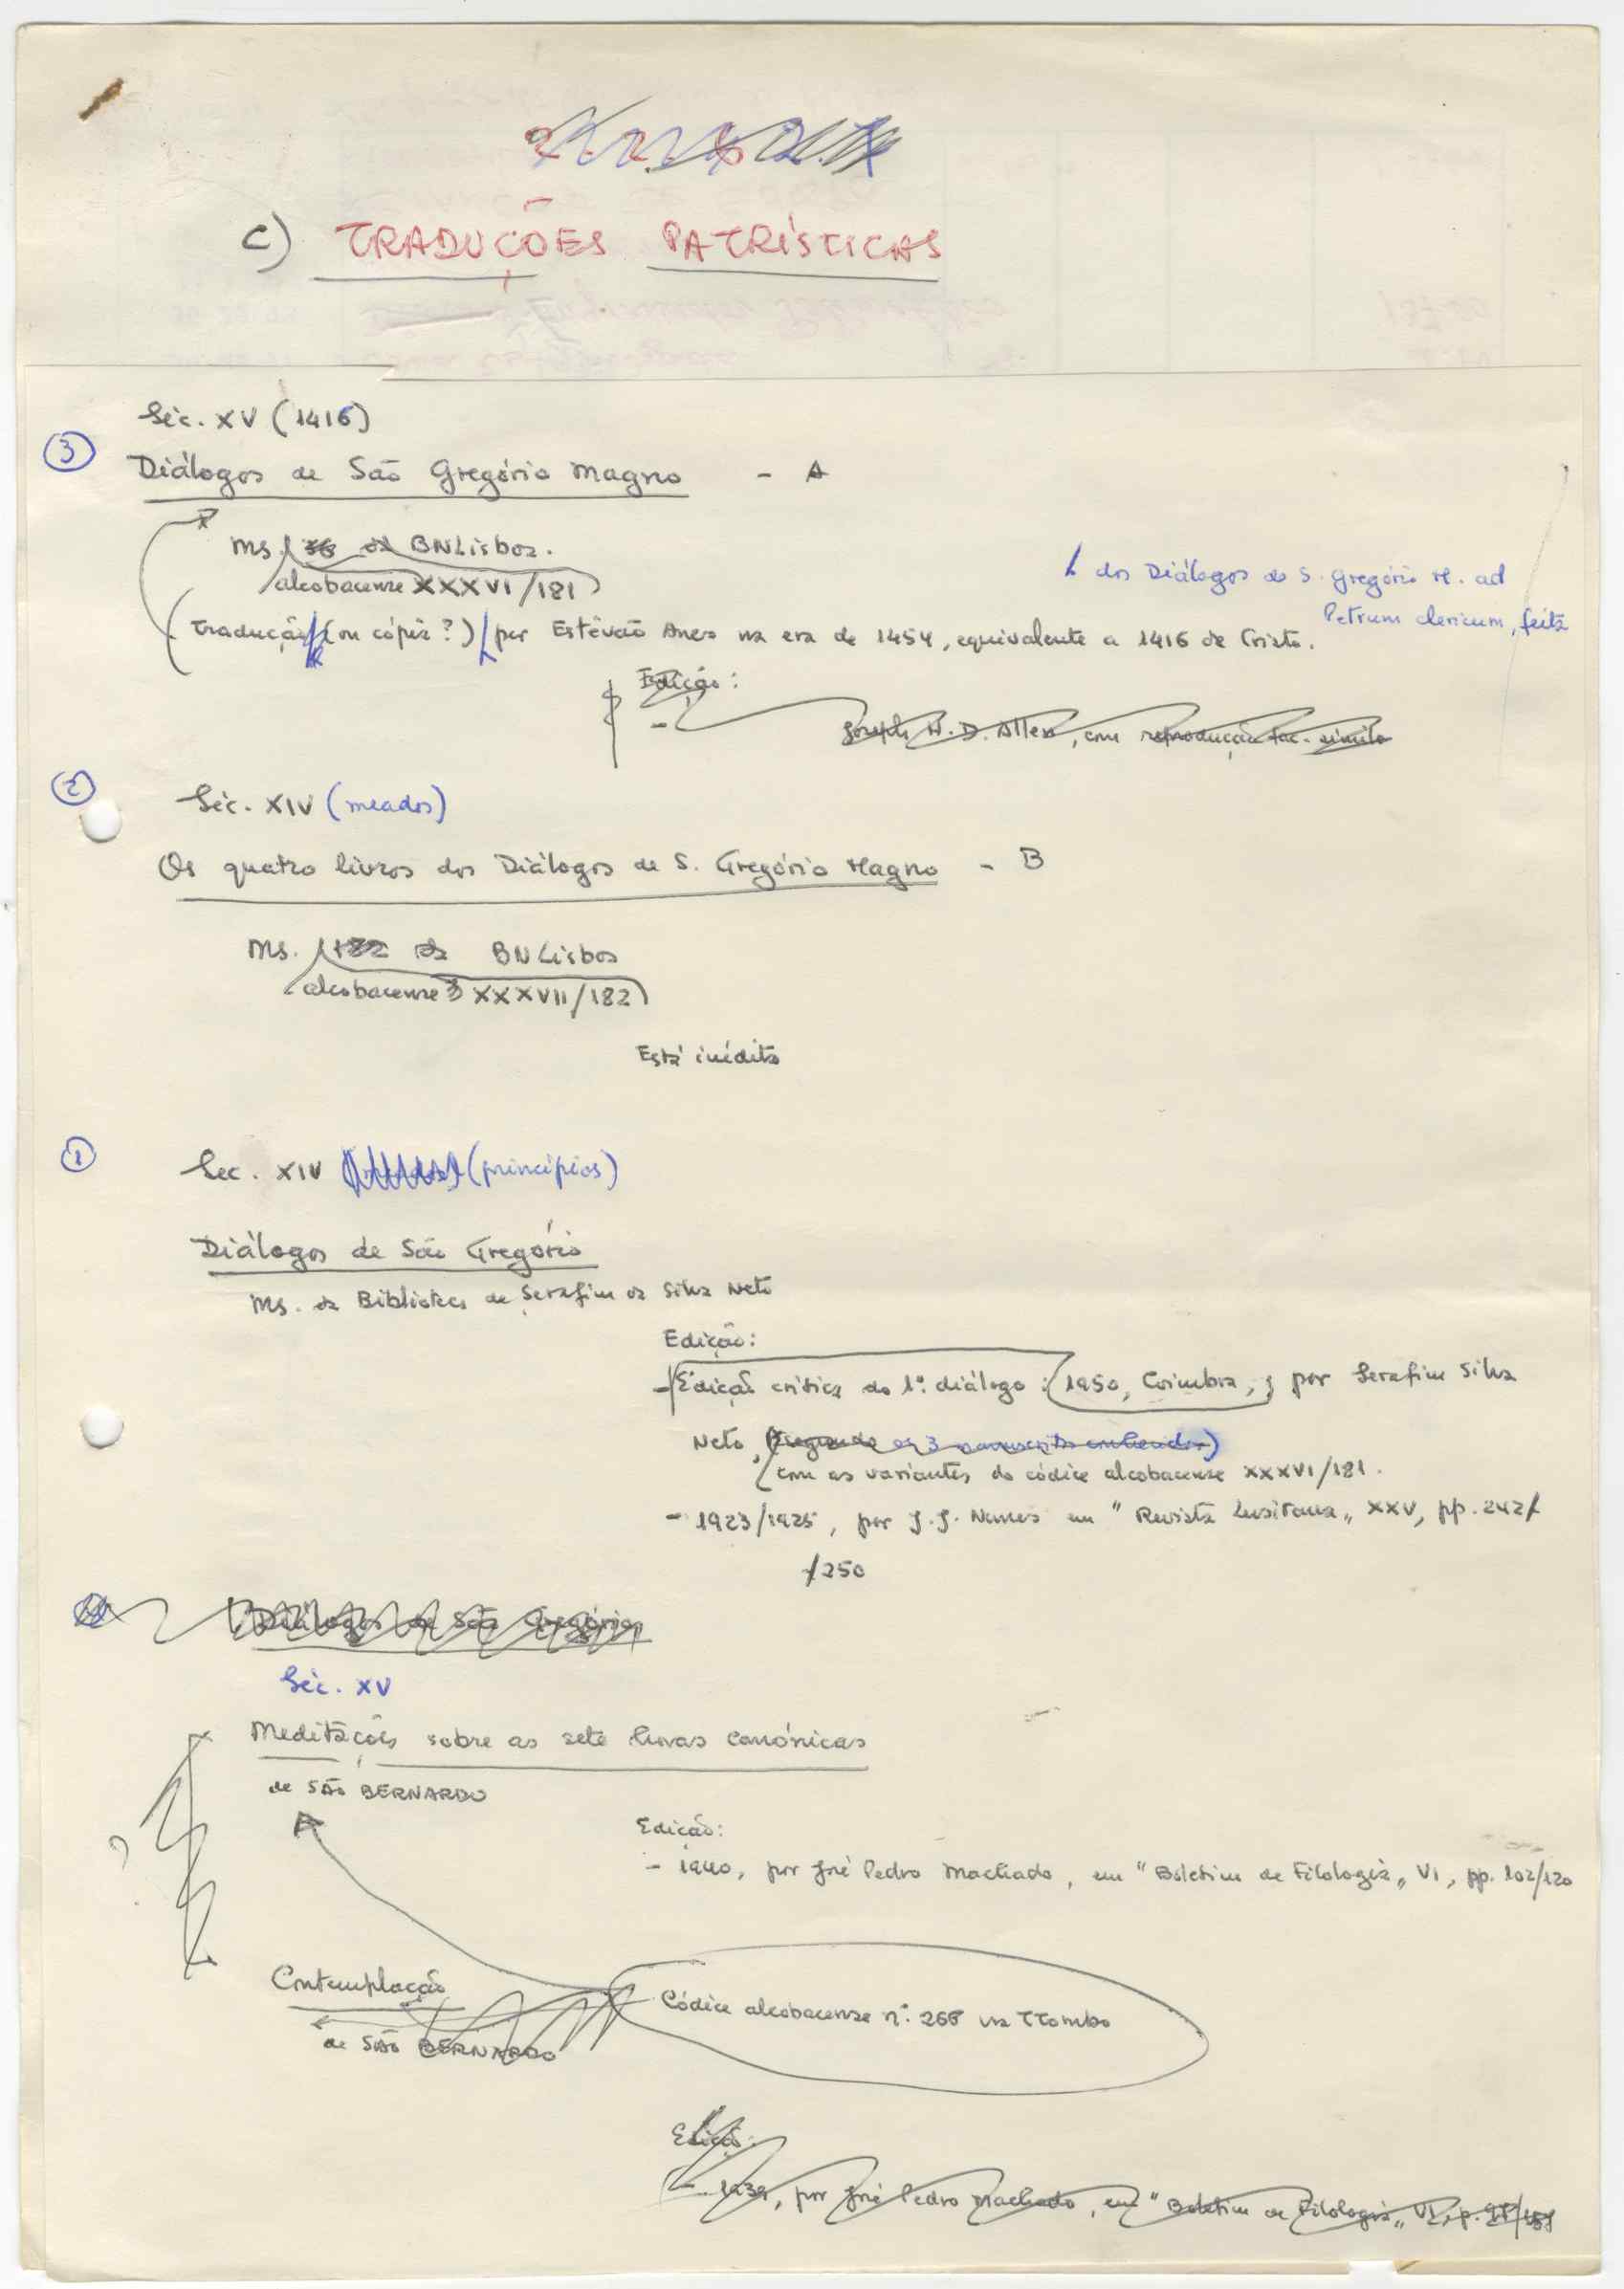 c) TRADUÇÕES PATRÍSTICAS
Séc. XV (1416)
3
Diálogos de São Gregório Magno - A
Ms. 36 da BNLisboa.
alcobacense XXXVI/181
dos Diálogos de S. Gregório M. ad
Petrum clericum, feita
(Tradução (ou cópia?) por Estêvão Anes na era de 1454, equivalente a 1416 de Cristo.
Edição:
- Joseph H. D. Allen, com reprodução fac-simile
2
Séc. XIV (meados)
Os quatro livros dos Diálogos de S. Gregório Magno - B
Ms. 182 da BNLisboa
alcobacense XXXVII/182
Está inédito
1
Séc. XIV (princípios)
Diálogos de São Gregório
Ms. da Biblioteca de Serafim da Silva Neto
Edição:
- Edição crítica do 1º diálogo: 1950, Coimbra, por Serafim Silva
Neto, (segundo os 3 manuscritos conhecidos)
com as variantes do códice alcobacense XXXVI/181.
- 1923/1925, por J. J. Nunes em "Revista Lusitana", XXV, pp. 242/
/250
Diálogos de São Gregório
Séc. XV
Meditações sobre as sete horas canónicas
de SÃO BERNARDO
Edição:
- 1940, por José Pedro Machado, em "Boletim de Filologia", VI, pp. 102/120
?
Contemplação
de SÃO BERNARDO
Códice alcobacense nº. 266 na TTombo
Edição:
- 1939, por José Pedro Machado, em "Boletim de Filologia", VI, p.